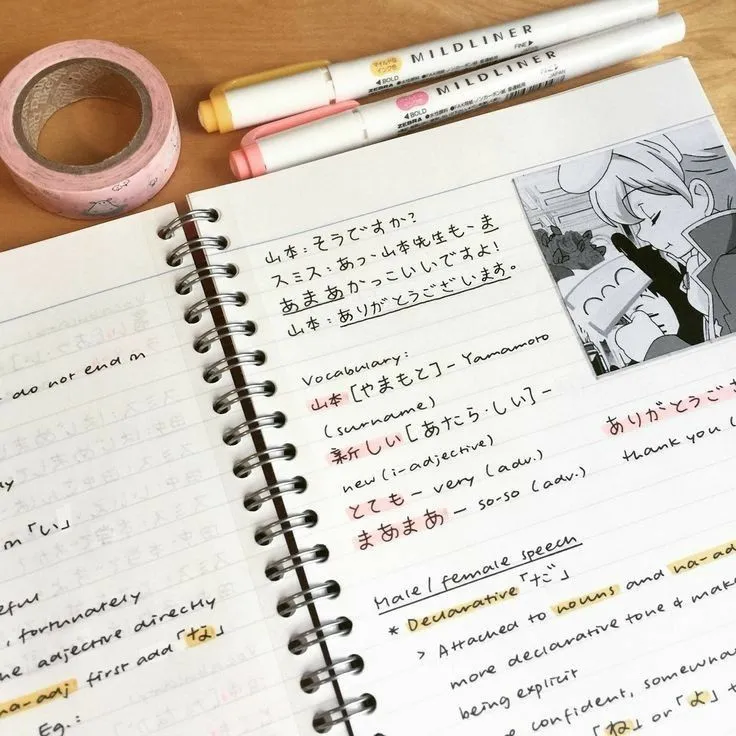 MILDLINER
FINE▶
◀BOLD
MILDLINER
◀BOLD
ZEBRA
JAPAN
do not end in
in「い」
, fortunately
adjective directly
na-adj first add「な」
Eg.:
山本:そうですか?
スミス:あっ、山本先生も、ま
あまあかっこいいですよ!
山本:ありがとうございます。
Vocabulary:
山本[やまもと]- Yamamoto
(surname)
新しい[あたら・しい]-
new (i-adjective)
とても- very (adv.)
まあまあ- so-so (adv.)
ありがとうござ
thank you (
Male / female speech
* Declarative「だ」
> Attached to nouns and na-ad
more declarative tone & make
being explicit
confident, somewha
「ね」or「よ」t